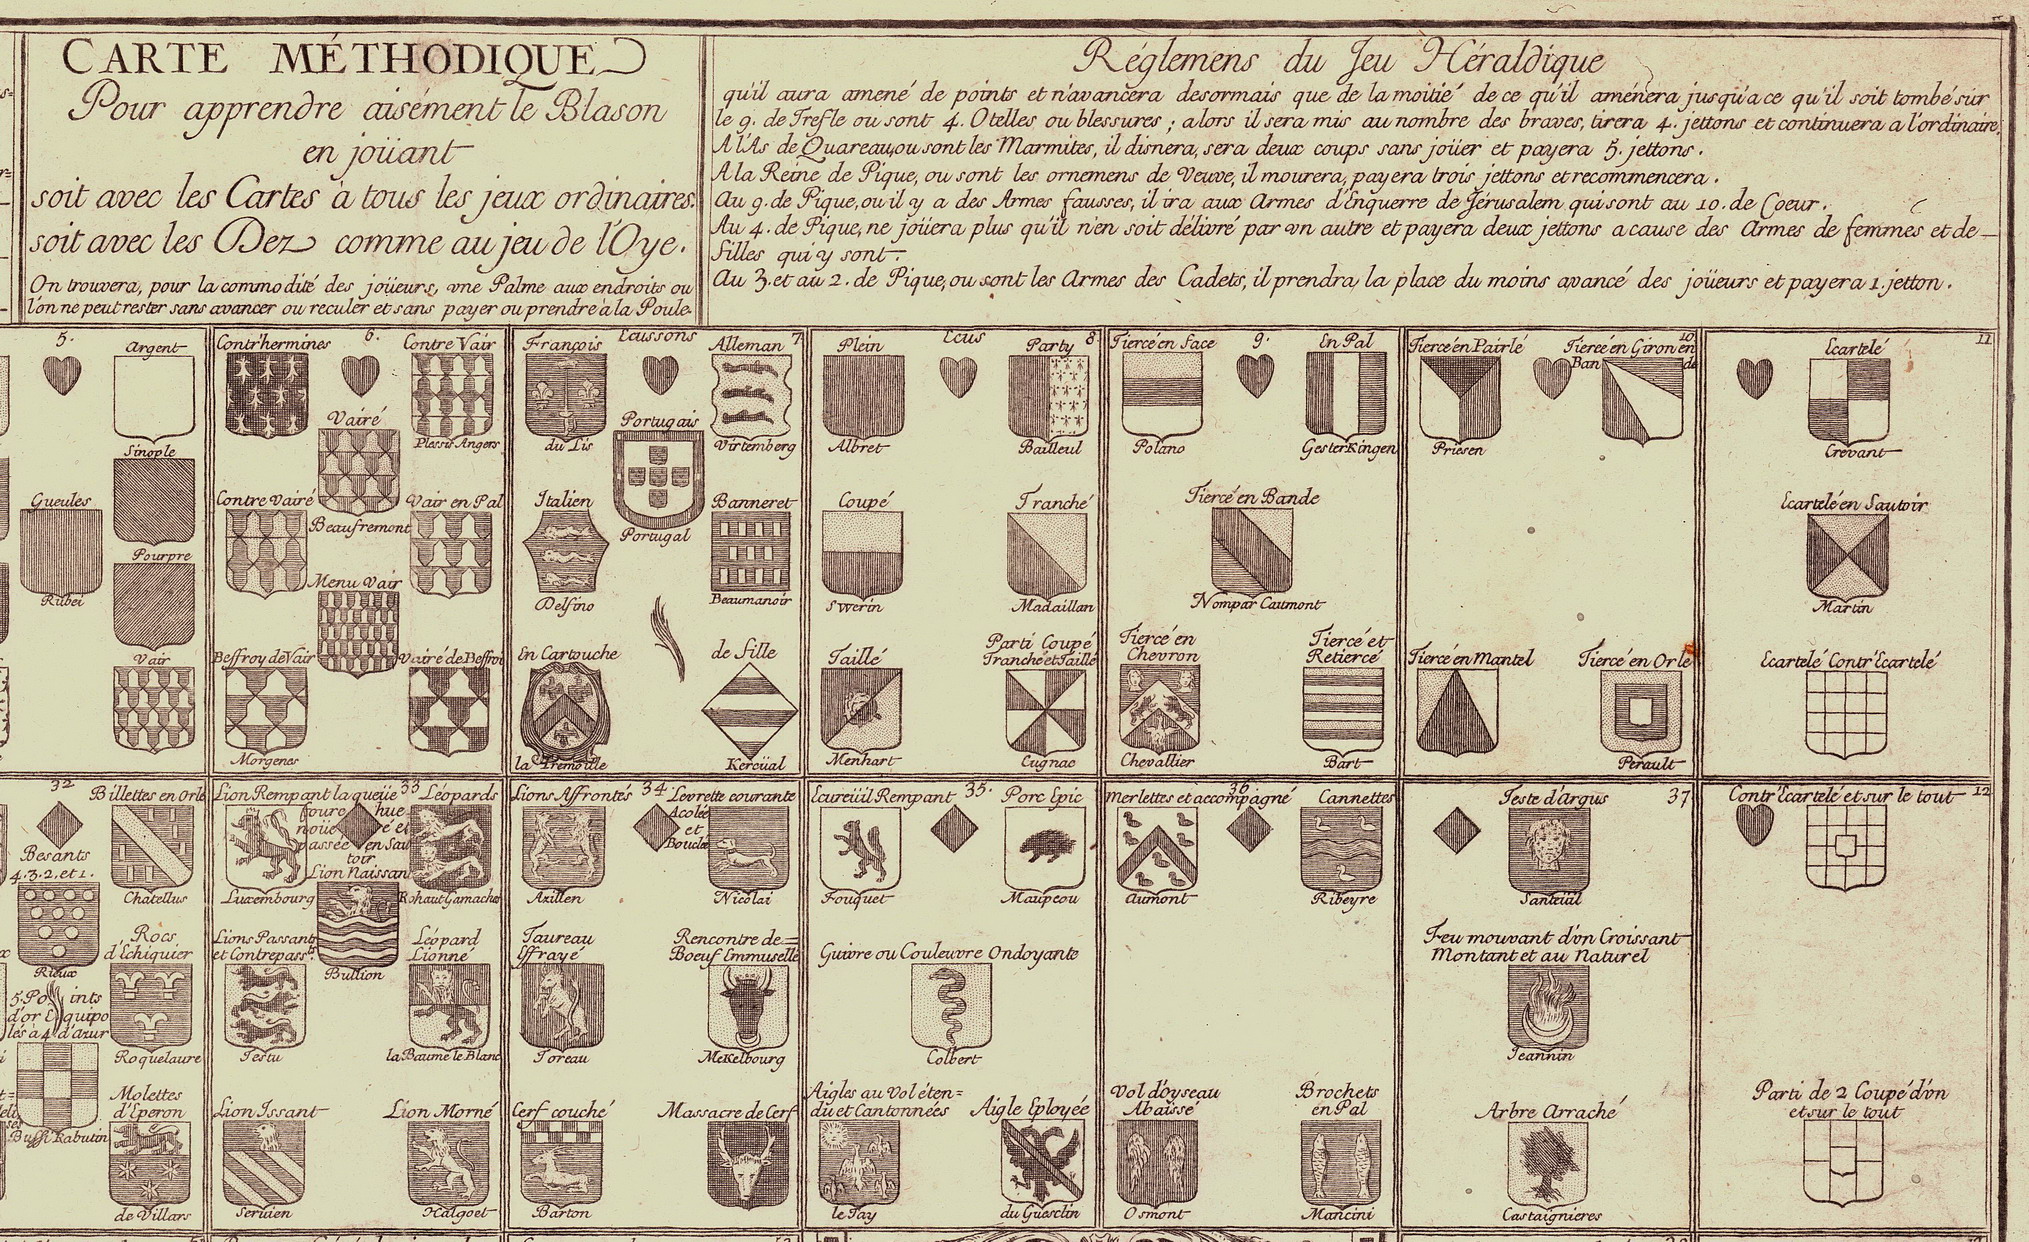 CARTE MÉTHODIQUE
Pour apprendre aisément le Blason
en joüant
soit avec les Cartes à tous les jeux ordinaires.
soit avec les Dez comme au jeu de l'Oye.
On trouvera, pour la commodité des joüeurs, vne Palme aux endroits ou
l'on ne peut rester sans avancer ou reculer et sans payer ou prendre à la Poule.
Réglemens du Jeu Héraldique
qu'il aura amené de points et n'avancera desormais que de la moitié de ce qu'il aménera jusqu'a ce qu'il soit tombé sur
le 9. de Trefle ou sont 4. Otelles ou blessures ; alors il sera mis au nombre des braves, tirera 4. jettons et continuera a l'ordinaire.
A l'As de Quareau, ou sont les Marmites, il disnera, sera deux coups sans joüer et payera 5. jettons.
A la Reine de Pique, ou sont les ornemens de Veuve, il mourera, payera trois jettons et recommencera.
Au 9. de Pique, ou il y a des Armes fausses, il ira aux Armes d'Enquerre de Jérusalem qui sont au 10. de Coeur.
Au 4. de Pique, ne joüera plus qu'il n'en soit délivré par vn autre et payera deux jettons a cause des Armes de femmes et de
filles qui y sont.
Au 3. et au 2. de Pique, ou sont les Armes des Cadets, il prendra la place du moins avancé des joüeurs et payera 1. jetton.
5.
Argent
Sinople
Gueules
Rubei
Pourpre
Vair
6.
Contr'hermines
Contre Vair
Plessis Angers
Vairé
Beaufremont
Contre Vairé
Vair en Pal
Menu Vair
Beffroy de Vair
Morgenes
Vairé de Beffroi
Ecussons
7
François
du Lis
Alleman
Virtemberg
Portugais
Portugal
Italien
Delfino
Banneret
Beaumanoir
En Cartouche
la Tremoille
de fille
Kercüal
Ecus
8
Plein
Albret
Party
Bailleul
Coupé
Swerin
Tranché
Madaillan
Taillé
Menhart
Parti Coupé
Tranché et Taillé
Cugnac
9.
Tiercé en Face
Polano
En Pal
GesterKingen
Tiercé en Bande
Nompar Caumont
Tiercé en
Chevron
Chevallier
Tiercé et
Retiercé
Bart
10
Tiercé en Pairlé
Priesen
Tiercé en Giron en
Ban de
Tiercé en Mantel
Tiercé en Orle
Perault
11
Ecartelé
Crevant
Ecartelé en Sautoir
Martin
Ecartelé Contr'Ecartelé
32
Besants
4.3.2. et 1.
Rieux
Billettes en Orle
Chatellus
Rocs
d'Echiquier
Roquelaure
5. Po ints
d'or E quipo
lés à 4 d'azur
Bussi Rabutin
Molettes
d'Eperon
de Villars
33
Lion Rempant la queüe
fourc hue
noüe ré et
passée en Sau
toir
Luxembourg
Léopards
Rohaut Gamache
Lion Naissan
Bullion
Lions Passants
et Contrepass.ts
Testu
Léopard
Lionné
la Baume le Blanc
Lion Issant
Seruien
Lion Morné
Halgoet
34
Lions Affrontés
Azillen
Levrette courante
Acolée
et
Bouclée
Nicolai
Taureau
Effrayé
Toreau
Rencontre de
Boeuf Emmuselle
MeKelbourg
Cerf couché
Barton
Massacre de Cerf
35.
Ecureüil Rempant
Fouquet
Porc Epic
Maupeou
Guivre ou Couleuvre Ondoyante
Colbert
Aigles au Vol éten=
du et Cantonnées
le Fay
Aigle Eployée
du Guesclin
36
Merlettes et accompagné
Aumont
Cannettes
Ribeyre
Vol d'oyseau
Abaissé
Osmont
Brochets
en Pal
Mancini
37
Teste d'Argus
Santeüil
Feu mouvant d'vn Croissant
Montant et au Naturel
Jeannin
Arbre Arraché
Castaignieres
12
Contr'Ecartelé et sur le tout
Parti de 2 Coupé d'vn
et sur le tout